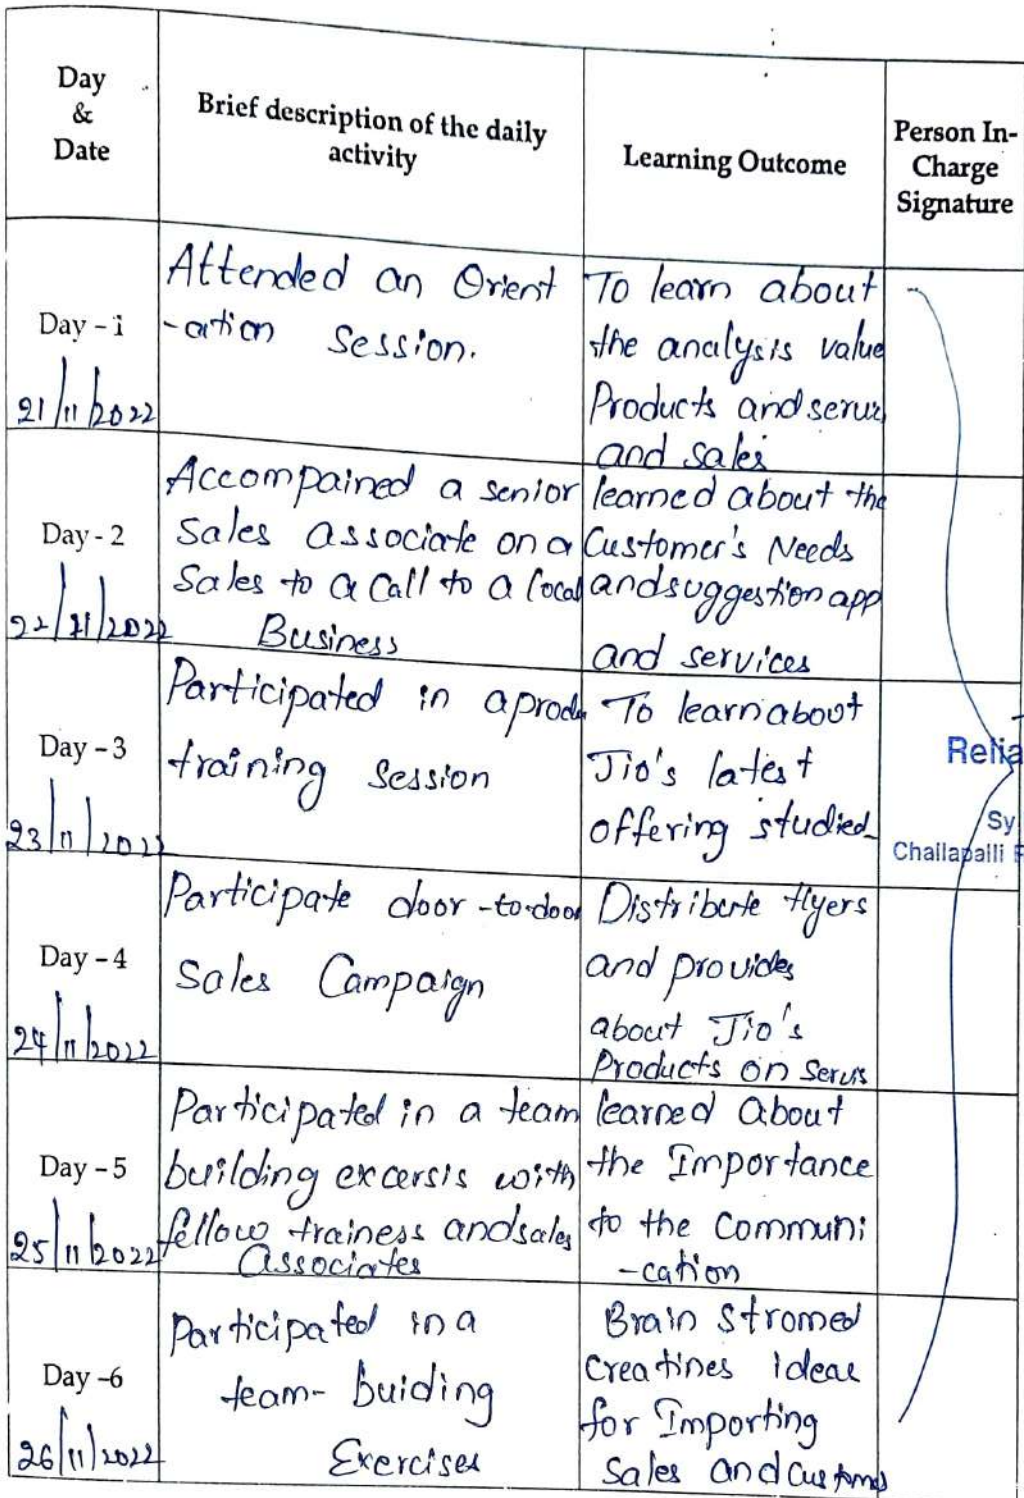 Day
&
Date
Brief description of the daily
activity
Learning Outcome
Person In-
Charge
Signature
Day - 1
21/11/2022
Attended an Orient
-ation Session.
To learn about
the analysis value
Products and
and sales
Day - 2
22/11/2022
Accompained a senior
Sales associate on a
Sales to a Call to a local
Business
learned about the
Customer's Needs
and suggestion app
and services
Day - 3
23/11/2022
Participated in a
training Session
To learn about
Jio's latest
offering studied
Relia
Sy
Challapalli
Day - 4
24/11/2022
Participate door-to-door
Sales Campaign
Distribute flyers
and provides
about Jio's
Products on
Day - 5
25/11/2022
Participated in a team
building excersis with
fellow trainess and sales
Associates
learned about
the Importance
to the Communi
-cation
Day -6
26/11/2022
Participated in a
team- buiding
Exercises
Brain stromed
creatines ideas
for Importing
Sales and